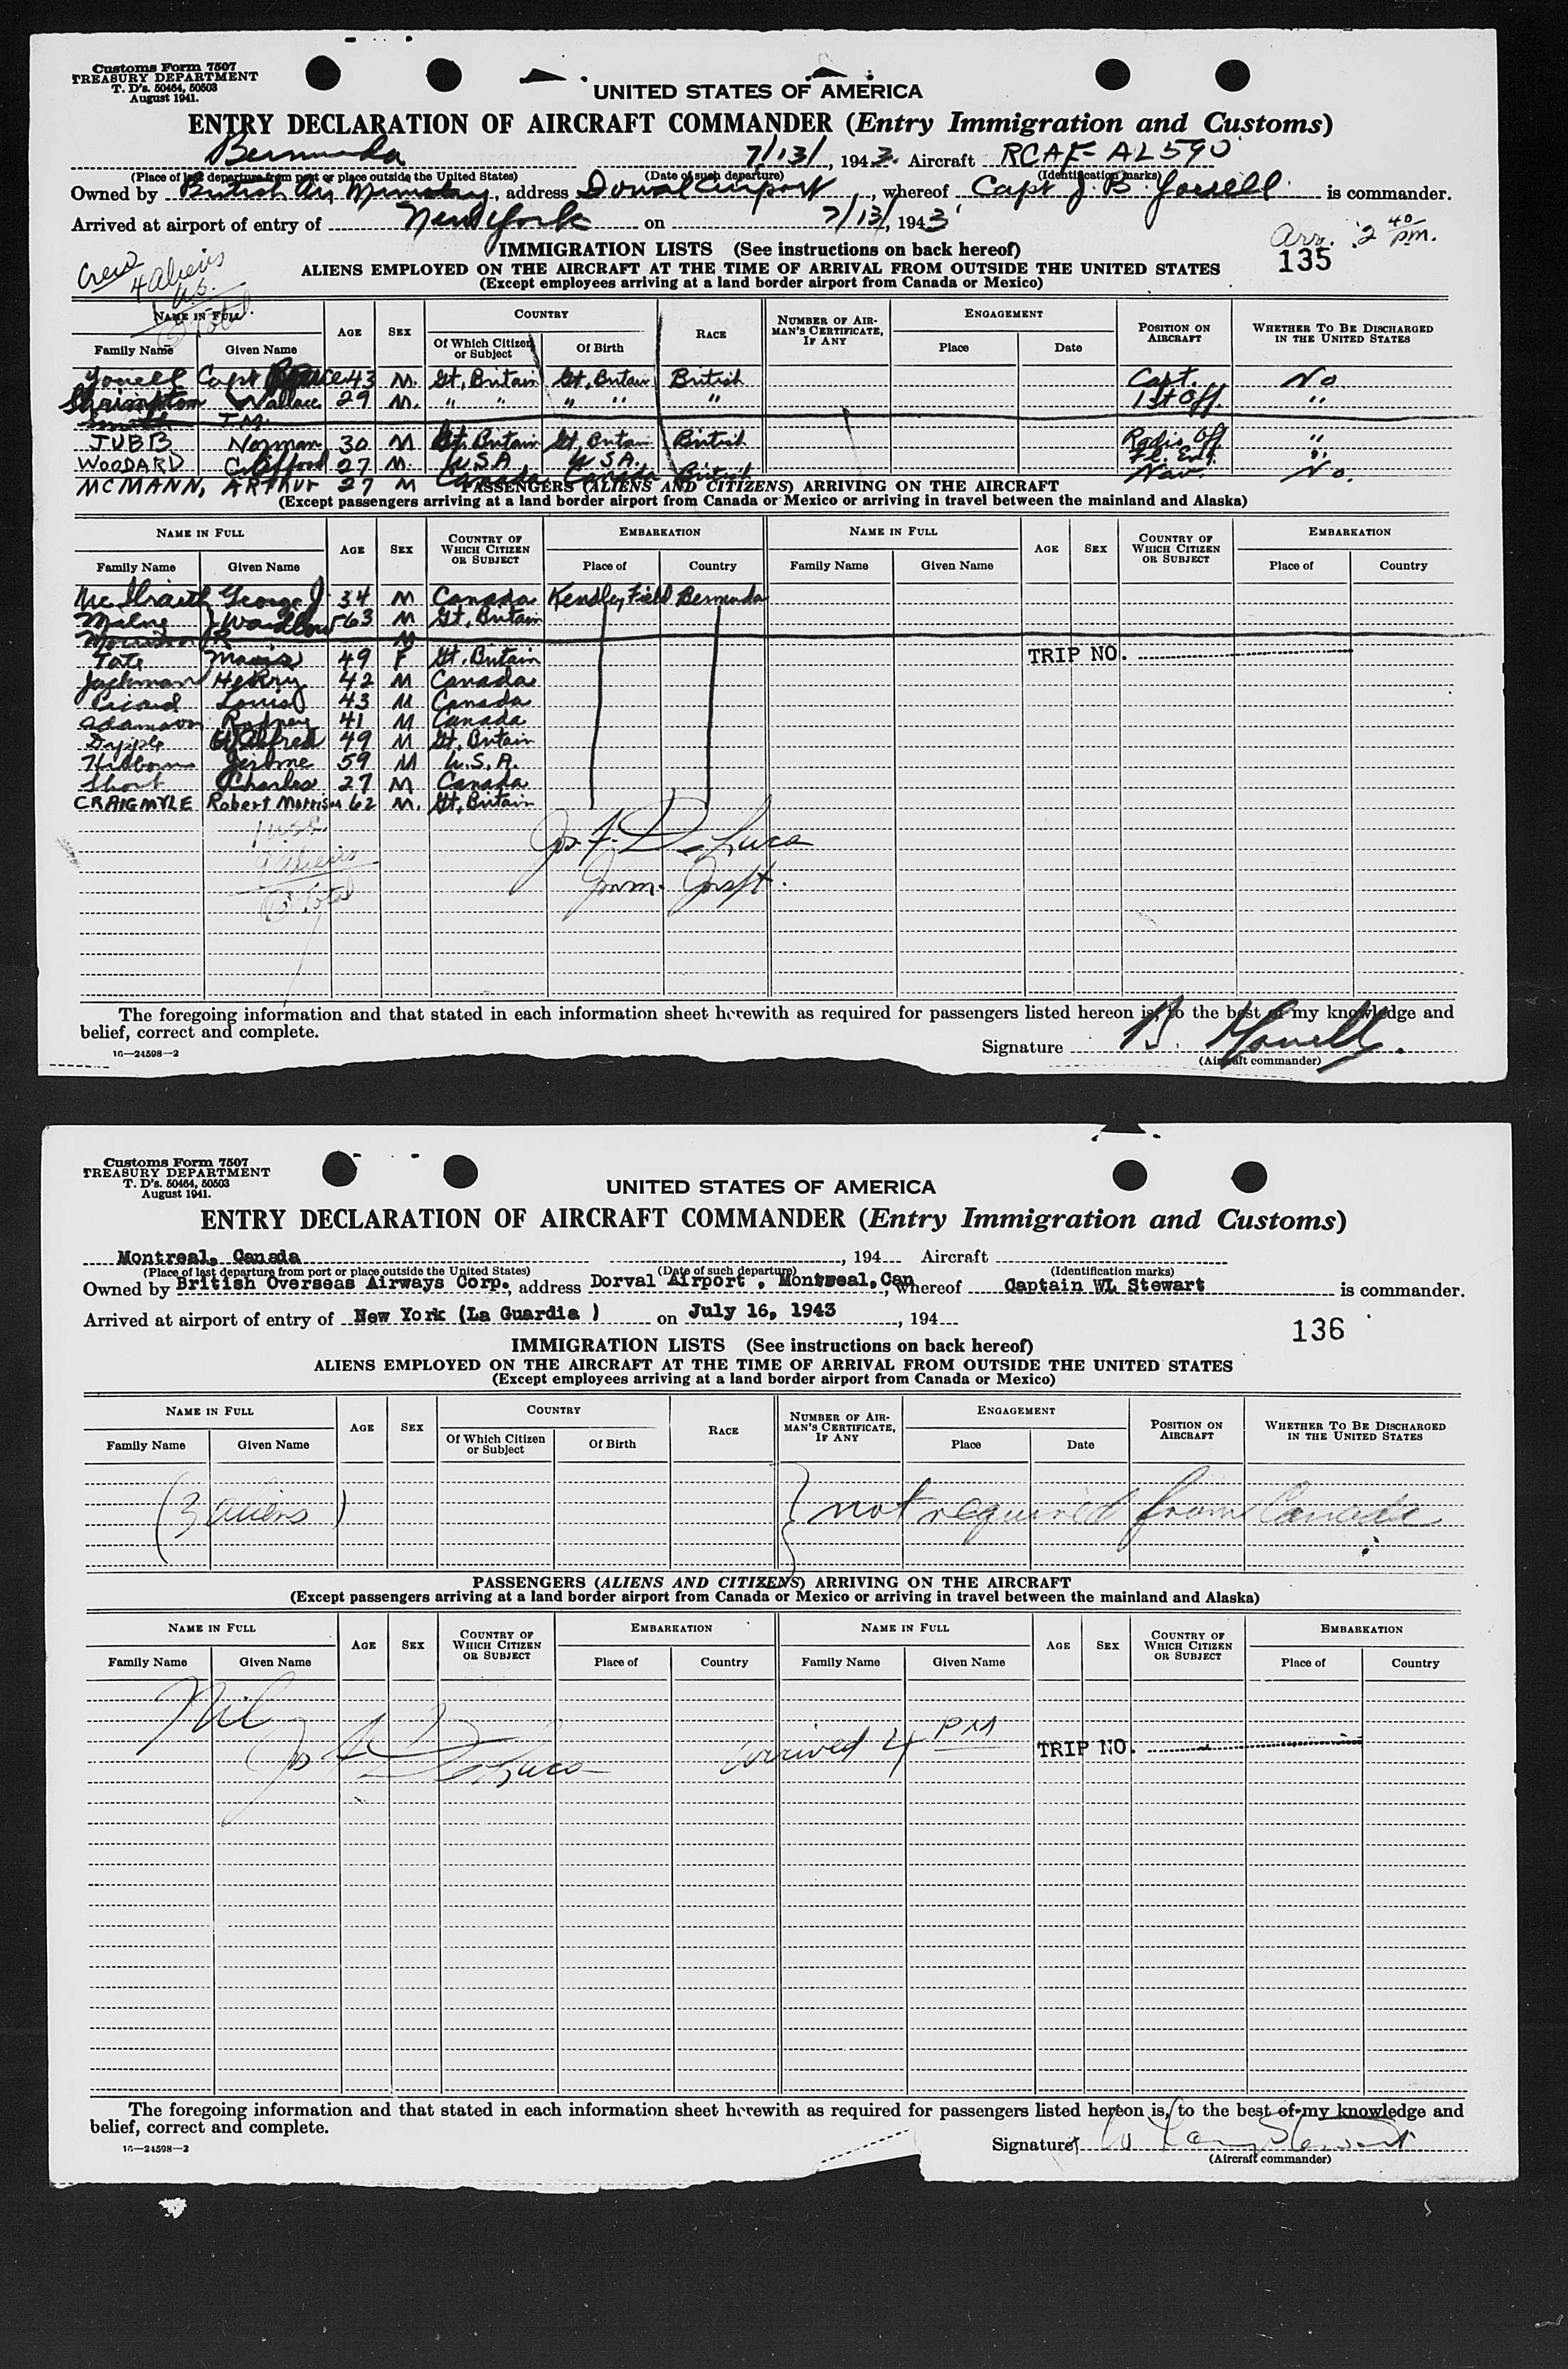 Customs Form 7507
TREASURY DEPARTMENT
T. D's. 50464, 50503
August 1941.
UNITED STATES OF AMERICA
ENTRY DECLARATION OF AIRCRAFT COMMANDER (Entry Immigration and Customs)
Bermuda 7/13/, 1943. Aircraft RCAF AL590
(Place of last departure from port or place outside the United States) (Date of such departure) (Identification marks)
Owned by British Air Ministry, address Dorval Airport, whereof Capt J. B. is commander.
Arrived at airport of entry of New York on 7/13/, 1943
Arr. 2 40 pm.
135
IMMIGRATION LISTS (See instructions on back hereof)
Crew 4 aliens
ALIENS EMPLOYED ON THE AIRCRAFT AT THE TIME OF ARRIVAL FROM OUTSIDE THE UNITED STATES
(Except employees arriving at a land border airport from Canada or Mexico)
NAME IN FULL AGE SEX COUNTRY RACE NUMBER OF AIRMAN'S CERTIFICATE, IF ANY ENGAGEMENT POSITION ON AIRCRAFT WHETHER TO BE DISCHARGED IN THE UNITED STATES
Family Name Given Name Of Which Citizen or Subject Of Birth Place Date
Capt 43 M. Gt. Britain Gt. Britain British Capt. No
Shrimpton Wallace 29 M. " " " " " 1st Off. "
Smith T.M.
JUBB Norman 30 M Gt. Britain Gt. Britain British Radio Off "
WOODARD Clifford 27 M. U.S.A. U.S.A. Fl. Eng. "
MCMANN, ARTHUR 27 M Canada Canada British Nav. No.
PASSENGERS (ALIENS AND CITIZENS) ARRIVING ON THE AIRCRAFT
(Except passengers arriving at a land border airport from Canada or Mexico or arriving in travel between the mainland and Alaska)
NAME IN FULL AGE SEX COUNTRY OF WHICH CITIZEN OR SUBJECT EMBARKATION NAME IN FULL AGE SEX COUNTRY OF WHICH CITIZEN OR SUBJECT EMBARKATION
Family Name Given Name Place of Country Family Name Given Name Place of Country
McIlraith George J 34 M Canada Kindley Field Bermuda
Milne J Wardlaw 63 M Gt. Britain
Morrison R M
Tate Mavis 49 F Gt. Britain
TRIP NO.
Jackman Henry 42 M Canada
Picard Louis 43 M Canada
Adamson Rodney 41 M Canada
Dypple Wilfred 49 M Gt. Britain
Hilborn Jerome 59 M U.S.A.
Short Charles 27 M Canada
CRAIGMYLE Robert Morrison 62 M. Gt. Britain
1 USC
9 aliens
Total
Jos. F. De Luca
Imm. Inspt.
The foregoing information and that stated in each information sheet herewith as required for passengers listed hereon is, to the best of my knowledge and
belief, correct and complete.
Signature B.
(Aircraft commander)
16—24598—2
Customs Form 7507
TREASURY DEPARTMENT
T. D's. 50464, 50503
August 1941.
UNITED STATES OF AMERICA
ENTRY DECLARATION OF AIRCRAFT COMMANDER (Entry Immigration and Customs)
Montreal, Canada , 194 Aircraft
(Place of last departure from port or place outside the United States) (Date of such departure) (Identification marks)
Owned by British Overseas Airways Corp., address Dorval Airport, Montreal, Can, whereof Captain WL Stewart is commander.
Arrived at airport of entry of New York (La Guardia ) on July 16, 1943, 194
136
IMMIGRATION LISTS (See instructions on back hereof)
ALIENS EMPLOYED ON THE AIRCRAFT AT THE TIME OF ARRIVAL FROM OUTSIDE THE UNITED STATES
(Except employees arriving at a land border airport from Canada or Mexico)
NAME IN FULL AGE SEX COUNTRY RACE NUMBER OF AIRMAN'S CERTIFICATE, IF ANY ENGAGEMENT POSITION ON AIRCRAFT WHETHER TO BE DISCHARGED IN THE UNITED STATES
Family Name Given Name Of Which Citizen or Subject Of Birth Place Date
(3 aliens) not required from Canada
PASSENGERS (ALIENS AND CITIZENS) ARRIVING ON THE AIRCRAFT
(Except passengers arriving at a land border airport from Canada or Mexico or arriving in travel between the mainland and Alaska)
NAME IN FULL AGE SEX COUNTRY OF WHICH CITIZEN OR SUBJECT EMBARKATION NAME IN FULL AGE SEX COUNTRY OF WHICH CITIZEN OR SUBJECT EMBARKATION
Family Name Given Name Place of Country Family Name Given Name Place of Country
Nil
Jos F De Luca arrived 4 PM TRIP NO.
The foregoing information and that stated in each information sheet herewith as required for passengers listed hereon is, to the best of my knowledge and
belief, correct and complete.
Signature W Stewart
(Aircraft commander)
16—24598—2